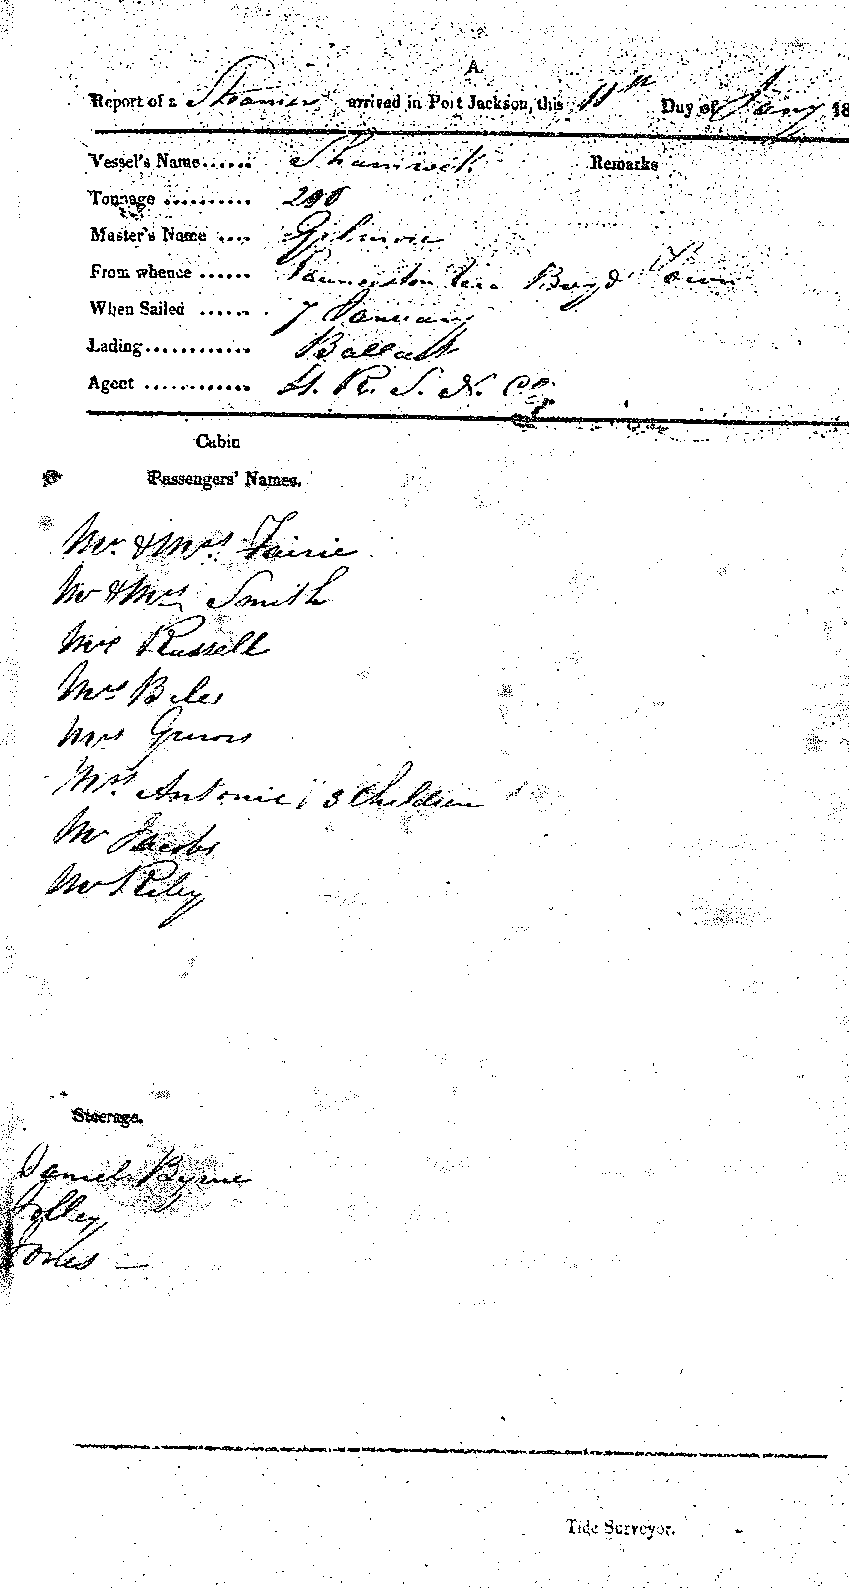 A.
Report of a Steamer arrived in Port Jackson, this 11th Day of Jany 18
Vessel's Name...... Shamrock Remarks
Tonnage .......... 200
Master's Name .... Gilmore
From whence ...... Launceston via Boyd Town
When Sailed ...... 7 January
Lading............ Ballast
Agent ............ H. R. S. N. Coy
Cabin
Passengers' Names.
Mr. & Mrs. Fairie
Mr & Mrs Smith
Mrs Russell
Mrs Biles
Mrs
Mrs. Antonie 3 Children
Mr Jacobs
Mr Riley
Steerage.
Daniel Byrne
Jolley
Jones —
Tide Surveyor.